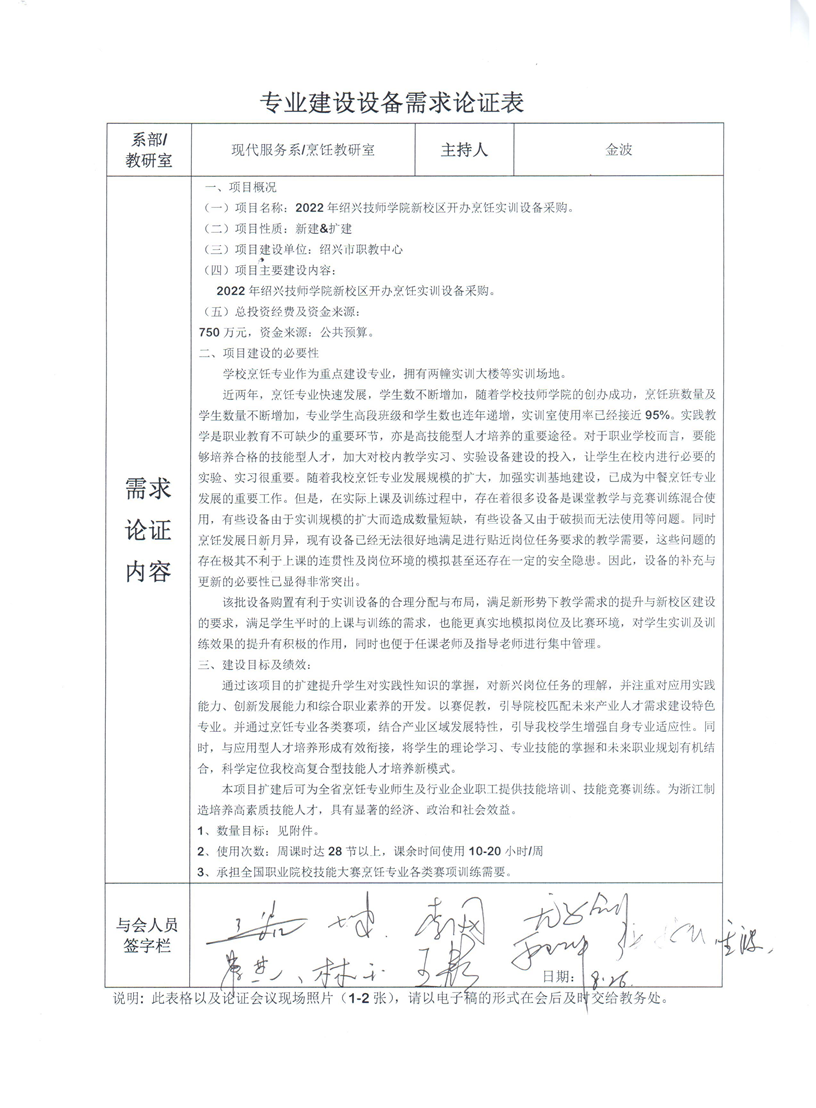 专业建设设备需求论证表
系部/
教研室
现代服务系/烹饪教研室
主持人
金波
需求
论证
内容
一、项目概况
（一）项目名称：2022 年绍兴技师学院新校区开办烹饪实训设备采购。
（二）项目性质：新建&扩建
（三）项目建设单位：绍兴市职教中心
（四）项目主要建设内容：
2022 年绍兴技师学院新校区开办烹饪实训设备采购。
（五）总投资经费及资金来源：
750 万元，资金来源：公共预算。
二、项目建设的必要性
学校烹饪专业作为重点建设专业，拥有两幢实训大楼等实训场地。
近两年，烹饪专业快速发展，学生数不断增加，随着学校技师学院的创办成功，烹饪班数量及
学生数量不断增加，专业学生高段班级和学生数也连年递增，实训室使用率已经接近 95%。实践教
学是职业教育不可缺少的重要环节，亦是高技能型人才培养的重要途径。对于职业学校而言，要能
够培养合格的技能型人才，加大对校内教学实习、实验设备建设的投入，让学生在校内进行必要的
实验、实习很重要。随着我校烹饪专业发展规模的扩大，加强实训基地建设，已成为中餐烹饪专业
发展的重要工作。但是，在实际上课及训练过程中，存在着很多设备是课堂教学与竞赛训练混合使
用，有些设备由于实训规模的扩大而造成数量短缺，有些设备又由于破损而无法使用等问题。同时
烹饪发展日新月异，现有设备已经无法很好地满足进行贴近岗位任务要求的教学需要，这些问题的
存在极其不利于上课的连贯性及岗位环境的模拟甚至还存在一定的安全隐患。因此，设备的补充与
更新的必要性已显得非常突出。
该批设备购置有利于实训设备的合理分配与布局，满足新形势下教学需求的提升与新校区建设
的要求，满足学生平时的上课与训练的需求，也能更真实地模拟岗位及比赛环境，对学生实训及训
练效果的提升有积极的作用，同时也便于任课老师及指导老师进行集中管理。
三、建设目标及绩效：
通过该项目的扩建提升学生对实践性知识的掌握，对新兴岗位任务的理解，并注重对应用实践
能力、创新发展能力和综合职业素养的开发。以赛促教，引导院校匹配未来产业人才需求建设特色
专业。并通过烹饪专业各类赛项，结合产业区域发展特性，引导我校学生增强自身专业适应性。同
时，与应用型人才培养形成有效衔接，将学生的理论学习、专业技能的掌握和未来职业规划有机结
合，科学定位我校高复合型技能人才培养新模式。
本项目扩建后可为全省烹饪专业师生及行业企业职工提供技能培训、技能竞赛训练。为浙江制
造培养高素质技能人才，具有显著的经济、政治和社会效益。
1、数量目标：见附件。
2、使用次数：周课时达 28 节以上，课余时间使用 10-20 小时/周
3、承担全国职业院校技能大赛烹饪专业各类赛项训练需要。
与会人员
签字栏
金波
日期： 8.26.
说明：此表格以及论证会议现场照片（1-2 张），请以电子稿的形式在会后及时交给教务处。